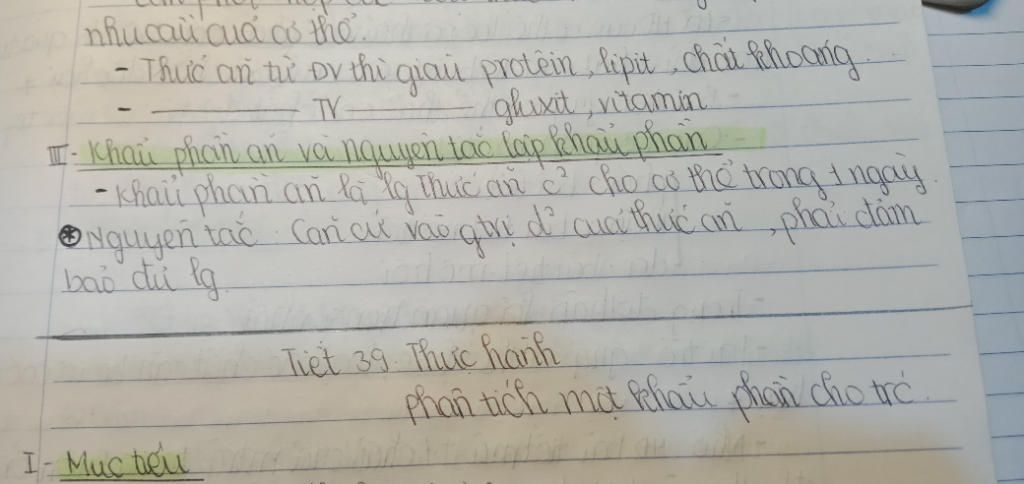 nhu cầu của cơ thể
- Thức ăn từ ĐV thì giàu protein, lipit, chất khoáng.
- ——— TV ——— gluxit, vitamin
III- Khẩu phần ăn và nguyên tắc lập khẩu phần
- Khẩu phần ăn là lg thức ăn c² cho cơ thể trong 1 ngày.
* Nguyên tắc: Căn cứ vào gtrị d² của thức ăn, phải đảm
bảo đủ lg
Tiết 39. Thực hành
phân tích một khẩu phần cho trc.
I- Mục tiêu